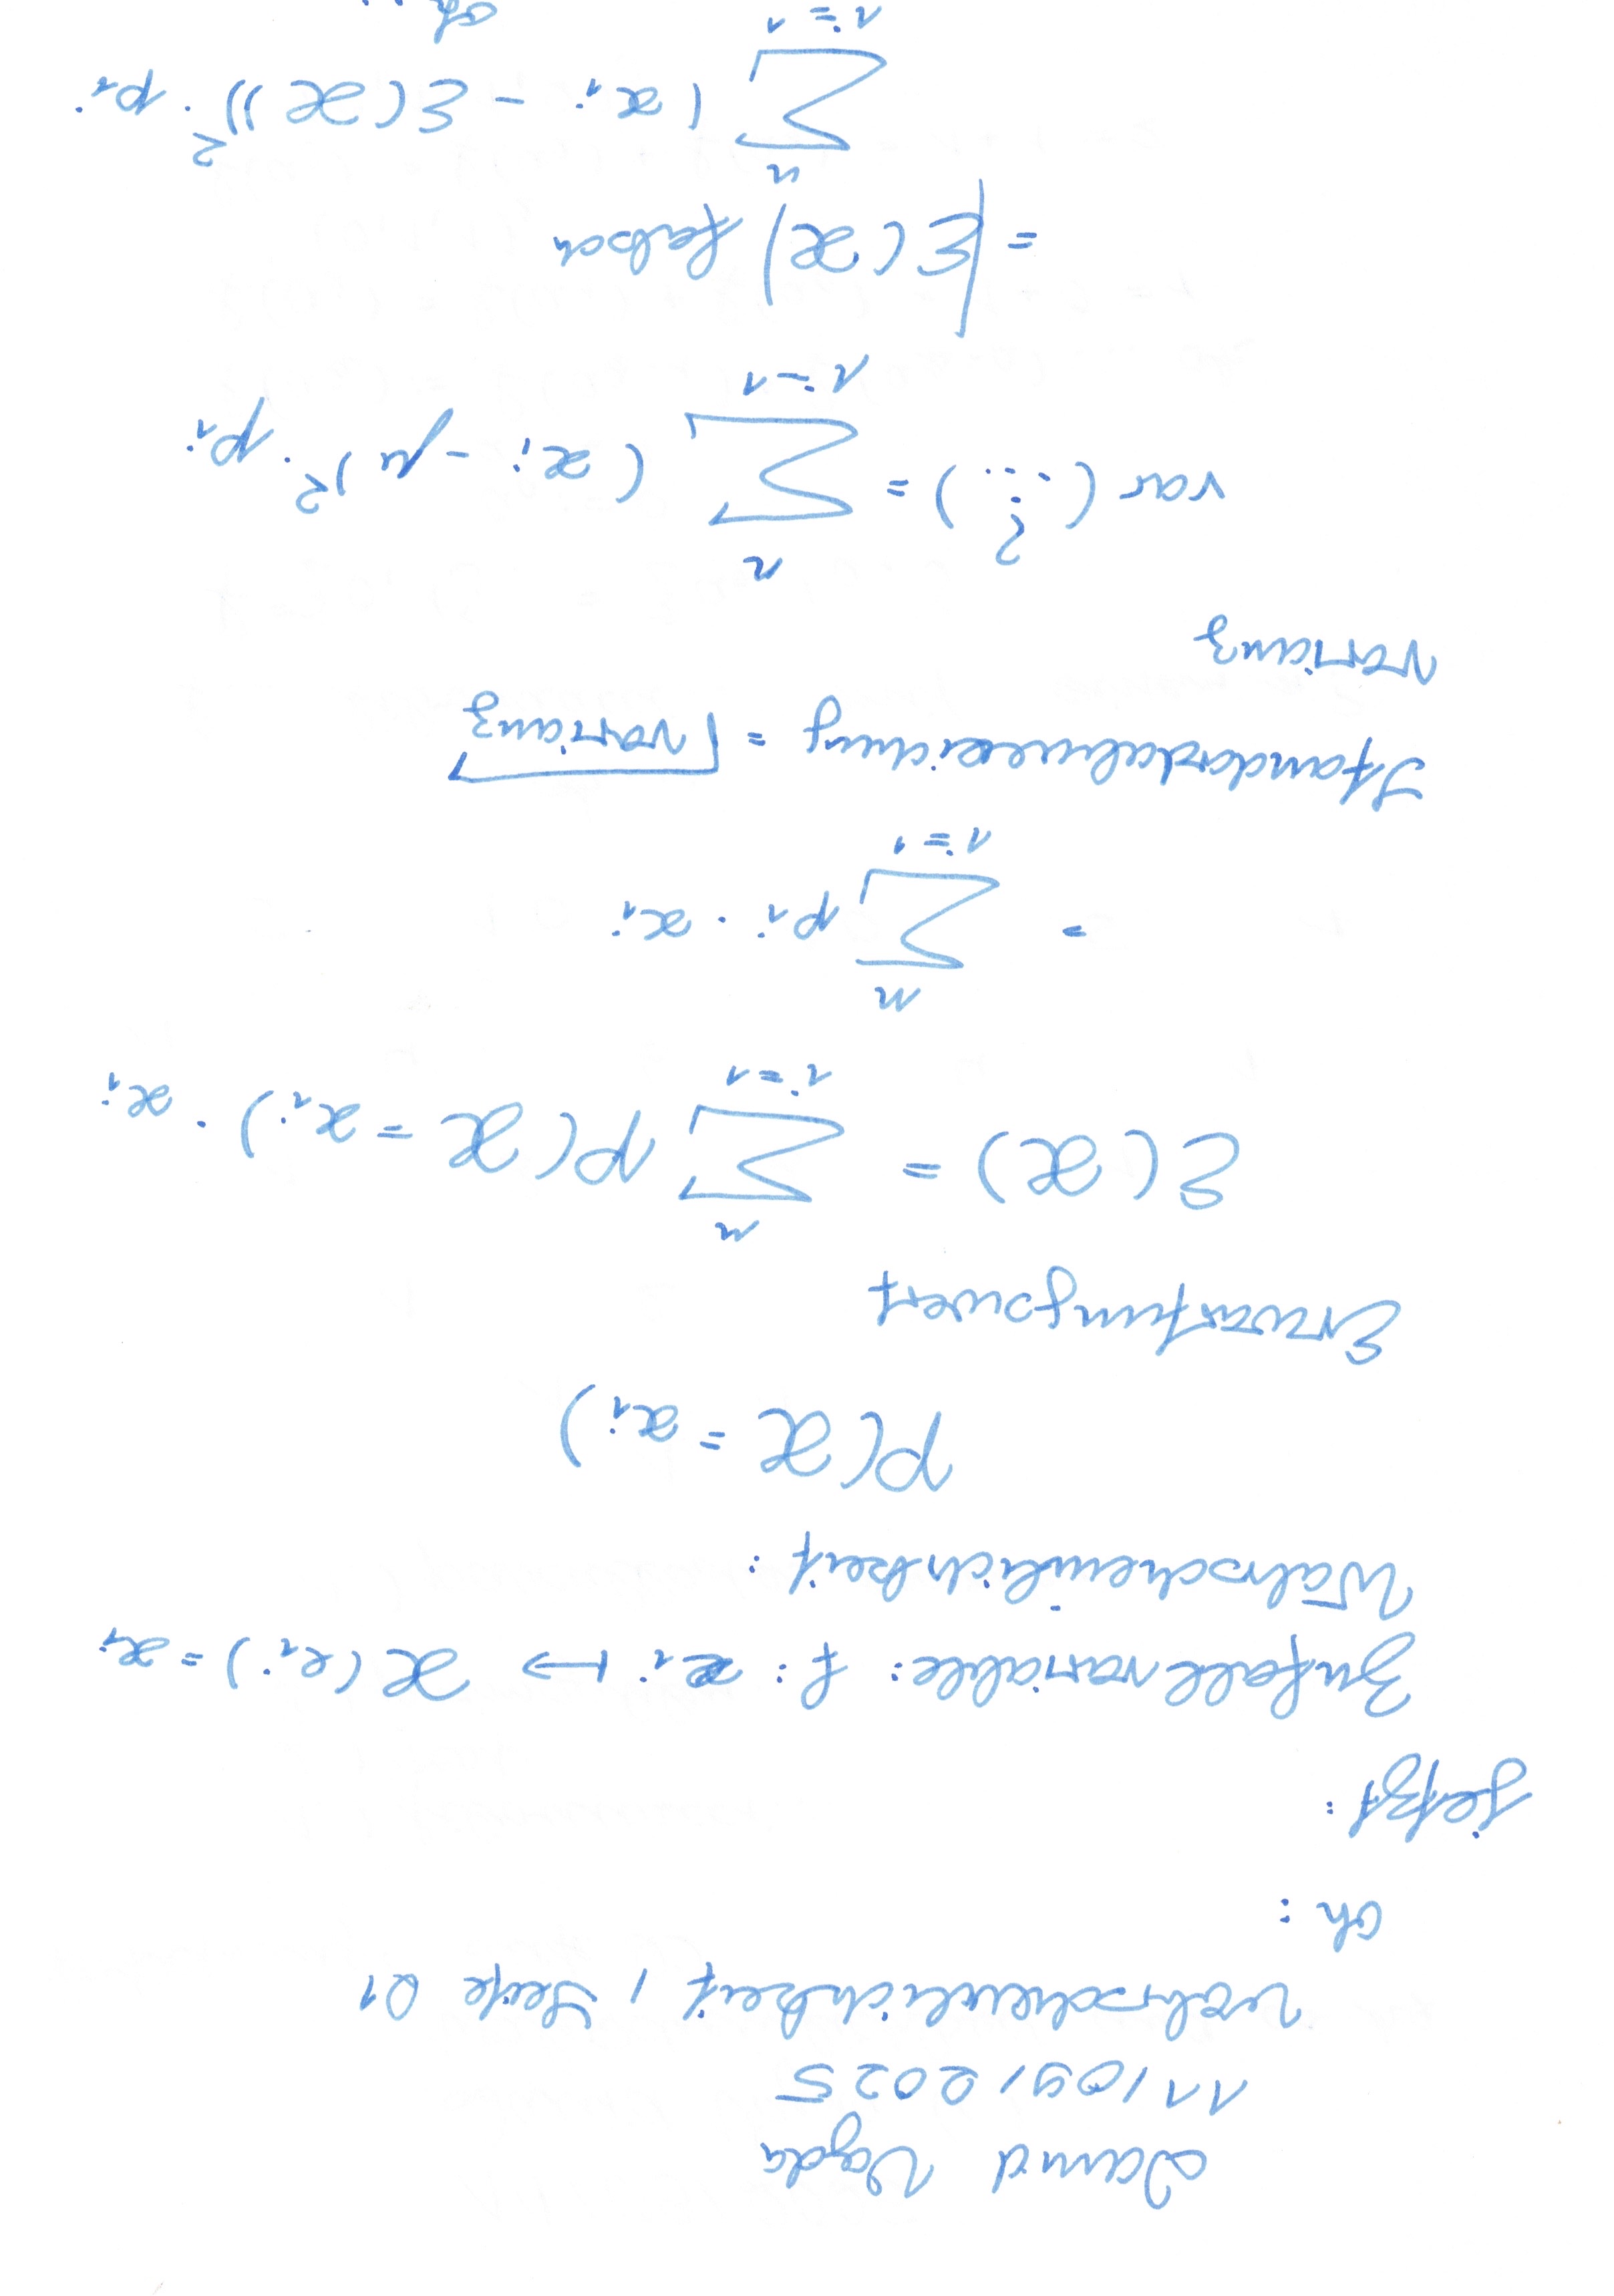 David Vajda
11109,2025
Wahrscheinlichkeit, Seite 01
oh:
jetzt:
Zufallvariable: f: xᵢ ↦ X(eᵢ) = xᵢ
Wahrscheinlichkeit:
P(X = xᵢ)
Erwartungswert
n
E(X) = ∑ P(X = xᵢ) · xᵢ
i=1
n
= ∑ pᵢ · xᵢ
i=1
Standardabweichung = √Varianz
Varianz
n
Var(?...) = ∑ (xᵢ - μ)² · pᵢ
i=1
= |E(X)| falsch
n
∑ (xᵢ - E(X))² · pᵢ
i=1
oh